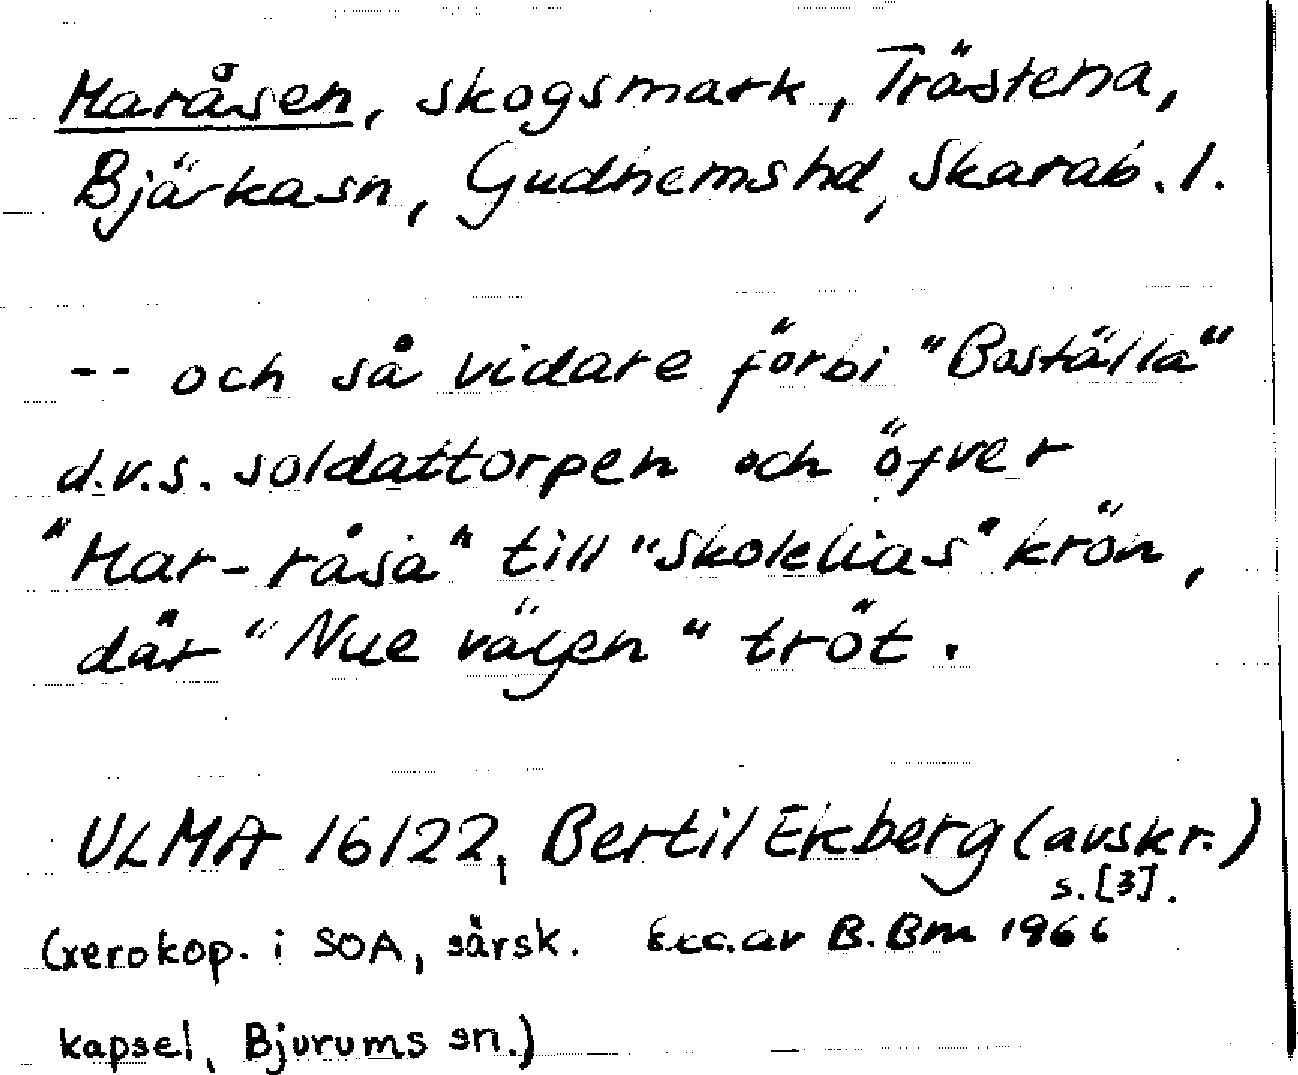 Maråsen, skogsmark, Trästena,
Bjärkasn, Gudhemshd, Skarab. l.
-- och så vidare förbi "Boställa"
d.v.s. soldattorpen och öfver
"Mar-råsa" till "Skolelias" krön,
där "Nue vägen" tröt.
ULMA 16122, Bertil Ekberg (avskr.)
s. [3].
(xerokop. i SOA, särsk. Exc. av B. Bm 1966
kapsel, Bjurums sn.)